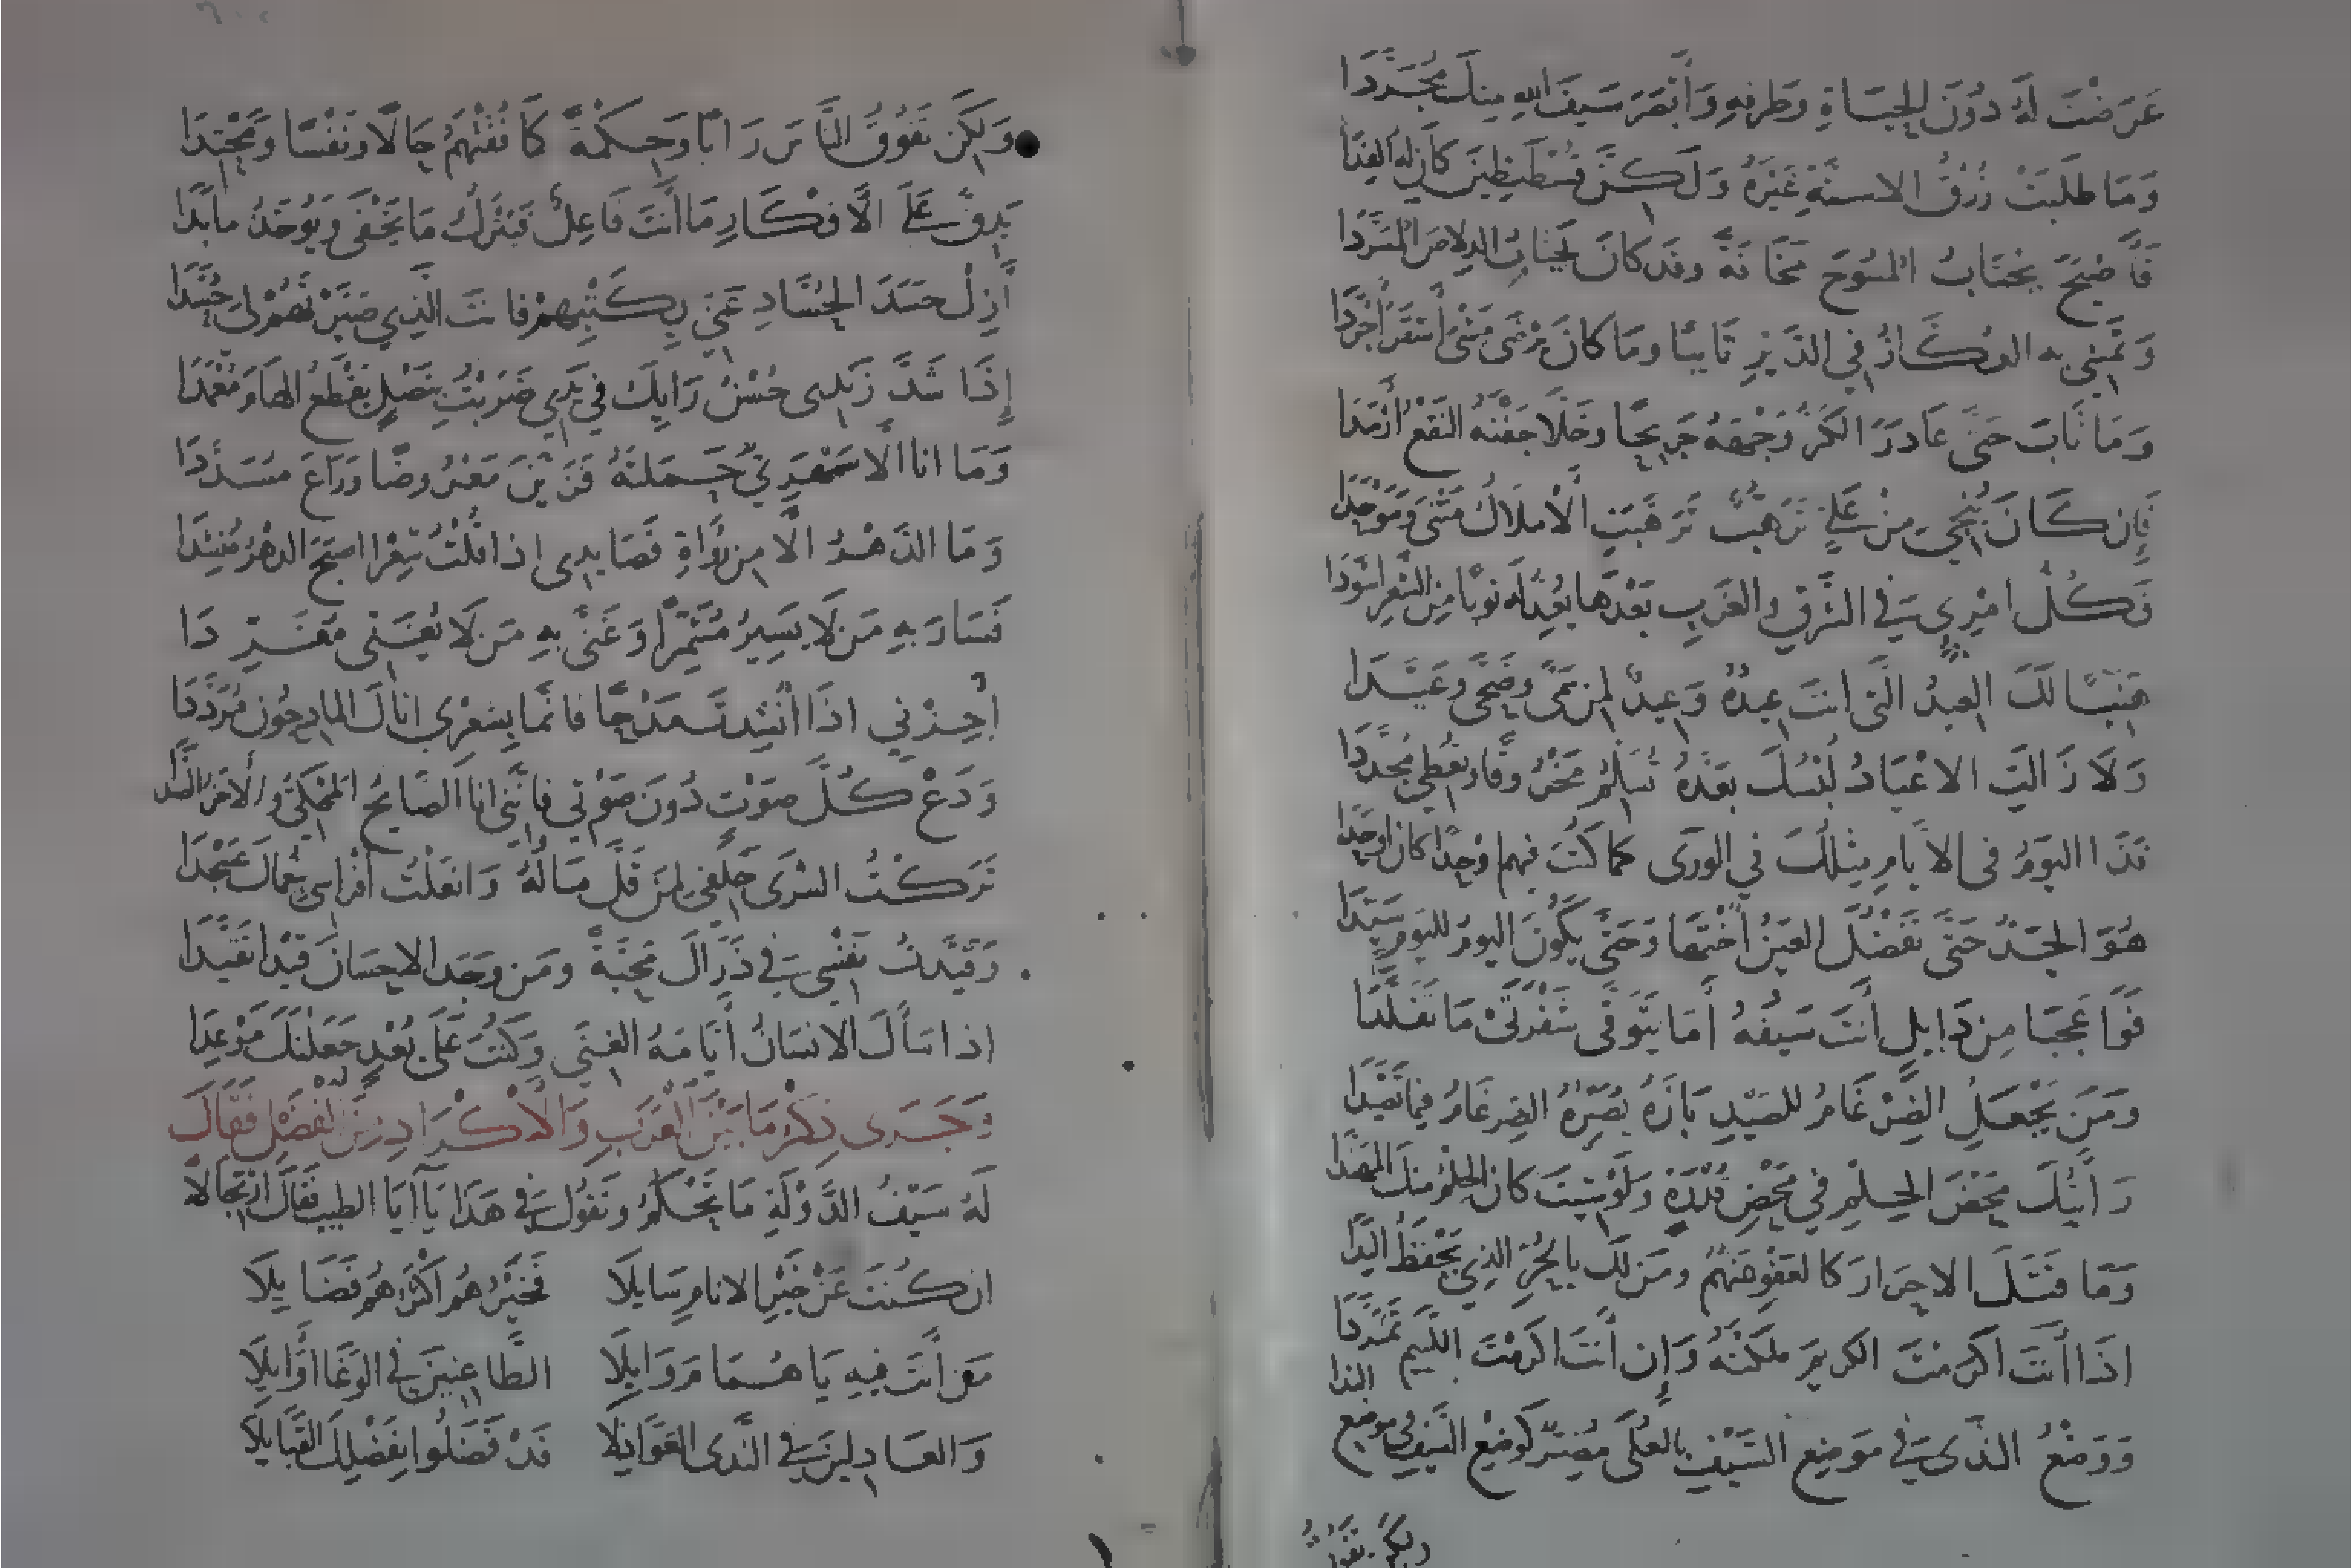 عَرَضْتَ لَهُ دُونَ الحَيَاةِ وَطَرفِهِ وَأَبْصَرَ سَيفَ اللهِ مِنكَ مُجَرَّدَا
وَمَا طَلَبَتْ زُرْقُ الاسنَّةِ غَيْرَهُ وَلَكنَّ قُسْطَنطِينَ كَانَ لهُ الفِدَا
فَأَصْبَحَ يَجْتَابُ المسُوحَ مَخَافَةً وقد كانَ يَجتابُ الدِلاصَ المُسَرَّدَا
وَتَمْشِي بهِ العُكَّازُ فِي الدَيْرِ تَايبًا ومَا كانَ يَرْضَى مَشْىَ أشقَرَ أَجْرَدَا
وَمَا تَابَ حَتَّى غَادرَ الكَرُّ وَجْهَهُ جَرِيحًا وخَلَّا جَفْنَهُ النَقْعُ أَرْمَدَا
فَإِن كَانَ يُنْجِي مِنْ عَلِيٍّ تَرَهُّبٌ تَرَهَّبَتِ الأَملاكُ مَثْنَى وَمَوْحَدَا
فَكُلُّ امْرِىءٍ فِي الشَّرقِ والغَربِ بَعْدَهَا يُعِدُّ لَهُ ثوبًا مِنَ الشَّعرِ اسْوَدَا
هَنيًا لَكَ العِيدُ الَّذى انتَ عِيدُهُ وَعِيدٌ لِمَن سَمَّى وَضَحَّى وعَيَّدَا
وَلَا زَالَتِ الاعْيَادُ لُبْسَكَ بَعْدَهُ تُسَلِّمُ مَخرُوقًا وتُعْطِي مُجَدَّدَا
فَذَا اليَومُ فى الايَّامِ مِثلُكَ فِي الورَى كما كُنْتَ فيهم اوحِدًا كان اوحَدَا
هُوَ الجَدُّ حَتَّى تَفْضُلَ العَينُ أُخْتَهَا وَحَتَّى يَكُونَ اليومُ لليَومِ سَيِّدَا
فَوَا عَجَبَا مِن دَايلٍ أَنتَ سَيفُهُ أَمَا يَتَوَقَّى شَفْرَتَىْ مَا تَقَلَّدَا
ومَن يَجْعَلِ الضِّرْغَامَ للصَيْدِ بَازَهُ يُصَيِّرُهُ الضِرغَامُ فِيمَا تَصَيَّدَا
رَأَيتُكَ مَحْضَ الحِلْمِ فِي مَحْضِ قُدْرَةٍ وَلَوْ شِيتَ كانَ الحِلْمُ مِنكَ المُهَنَّدَا
وَمَا قَتَلَ الاحرَارَ كالعَفْوِ عَنْهُمُ ومَن لَكَ بالحُرِّ الذِي يَحْفَظُ اليَدَا
اذَا أَنتَ اكرَمْتَ الكريمَ مَلَكتَهُ وَإِن أَنتَ اكرَمْتَ اللَّئِيمَ تَمَرَّدَا
وَوَضْعُ النَّدَى فِي مَوضِعِ السَّيْفِ بالعُلَى مُضِرٌّ كَوضْعِ السَّيفِ فى موضِعِ الندا
ولكن تفوق
وَلكِن تَفُوقُ النَّاسَ رَايًا وَحِكْمَةً كَمَا فُقْتَهُمُ حَالًا ونَفْسًا ومَحْتِدَا
يَدِقُّ عَلَى الأَفكَارِ مَا أَنتَ فَاعِلٌ فَيُتْرَكُ مَا يَخْفَى وَيُوخَذُ مابَدَا
أَزِلْ حَسَدَ الحُسَّادِ عَنِّي بِكَبْتِهِمْ فانتَ الَّذِي صَيَّرْتَهُمْ لِيَ حُسَّدَا
إِذَا شَدَّ زَندِى حُسْنُ رَايِكَ فِي يَدِي ضَرَبْتُ بِنَصْلٍ يَقْطَعُ الهَامَ مُغْمَدَا
وَمَا انا الَّا سَمْهَرِيٌّ حَمَلتَهُ فَزَيَّنَ مَعْرُوضًا وَرَاعَ مسَدَّدَا
وَمَا الدَّهْرُ الَّا مِن رُوَاةِ قَصَايدِى اذا قُلْتُ شِعْرًا اصبَحَ الدهرُ مُنشِدَا
فَسَارَ بِهِ مَن لَا يَسِيرُ مُشَمِّرًا وَغَنَّى بِهِ مَن لَا يُغَنِّى مُغَرِّدَا
أَجِزْنِي اذَا أُنْشِدتَ مَدْحًا فانَّمَا بِشِعْرِي اتاكَ المادِحُونَ مُرَدَّدَا
وَدَعْ كُلَّ صَوْتٍ دُونَ صَوْتِي فانَّنِي انا الصَّايحُ المَحْكِيُّ والآخَرُ الصَّدَا
تَرَكْتُ السُّرَى خَلْفِي لِمَن قَلَّ مَالُهُ وَانعَلْتُ افْرَاسِي بِنُعْمَاكَ عَسْجَدَا
وَقَيَّدتُ نَفْسِي فِي ذَرَاكَ مَحَبَّةً ومَن وجَدَ الاحِسَانَ قَيْدًا تَقَيَّدَا
اذا سَأَلَ الانسَانُ أَيَّامَهُ الغِنَى وَكُنْتَ عَلَى بُعْدٍ جَعَلْنَكَ مَوْعِدَا
وَجَرَى ذِكْرُ مَا بَيْنَ الْعَرَبِ وَالأَكْرَادِ مِنَ الْفَضْلِ فَقَالَ
لَهُ سَيْفُ الدَّوْلَةِ مَا تَحْكُمُ وتَقُولُ فِي هَذَا يَا أَبَا الطيب فَقَالَ ارْتِجَالًا
ان كُنتَ عَنْ خَيْرِ الانامِ سَايلَا فَخَيْرُهُم اكْثَرُهُم فَضَايِلَا
مَن أَنتَ فِيهِ يَا هُمَامَ وَايلَا الطَّاعِنِينَ فِي الوَغَا أَوَايلَا
وَالعَاذِلِينَ فِي النَّدَى العَوَاذِلَا قَدْ فَضَلُوا بِفَضْلِكَ القَبَايلَا